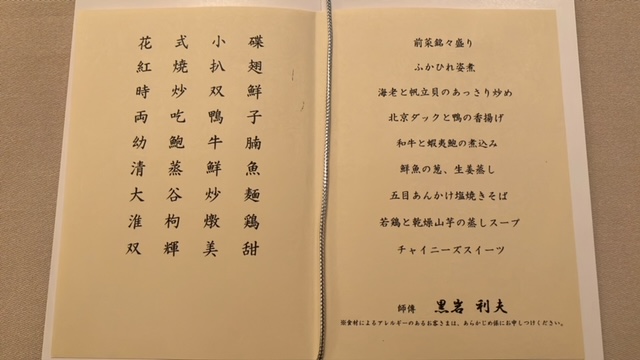 花式小碟
紅燒扒翅
時炒双鮮
両吃鴨子
幼鮑牛腩
清蒸鮮魚
大谷炒麺
淮枸燉鶏
双輝美甜
前菜銘々盛り
ふかひれ姿煮
海老と帆立貝のあっさり炒め
北京ダックと鴨の香揚げ
和牛と蝦夷鮑の煮込み
鮮魚の葱、生姜蒸し
五目あんかけ塩焼きそば
若鶏と乾燥山芋の蒸しスープ
チャイニーズスイーツ
師傅 黒岩 利夫
※食材によるアレルギーのあるお客さまは、あらかじめ係にお申しつけください。